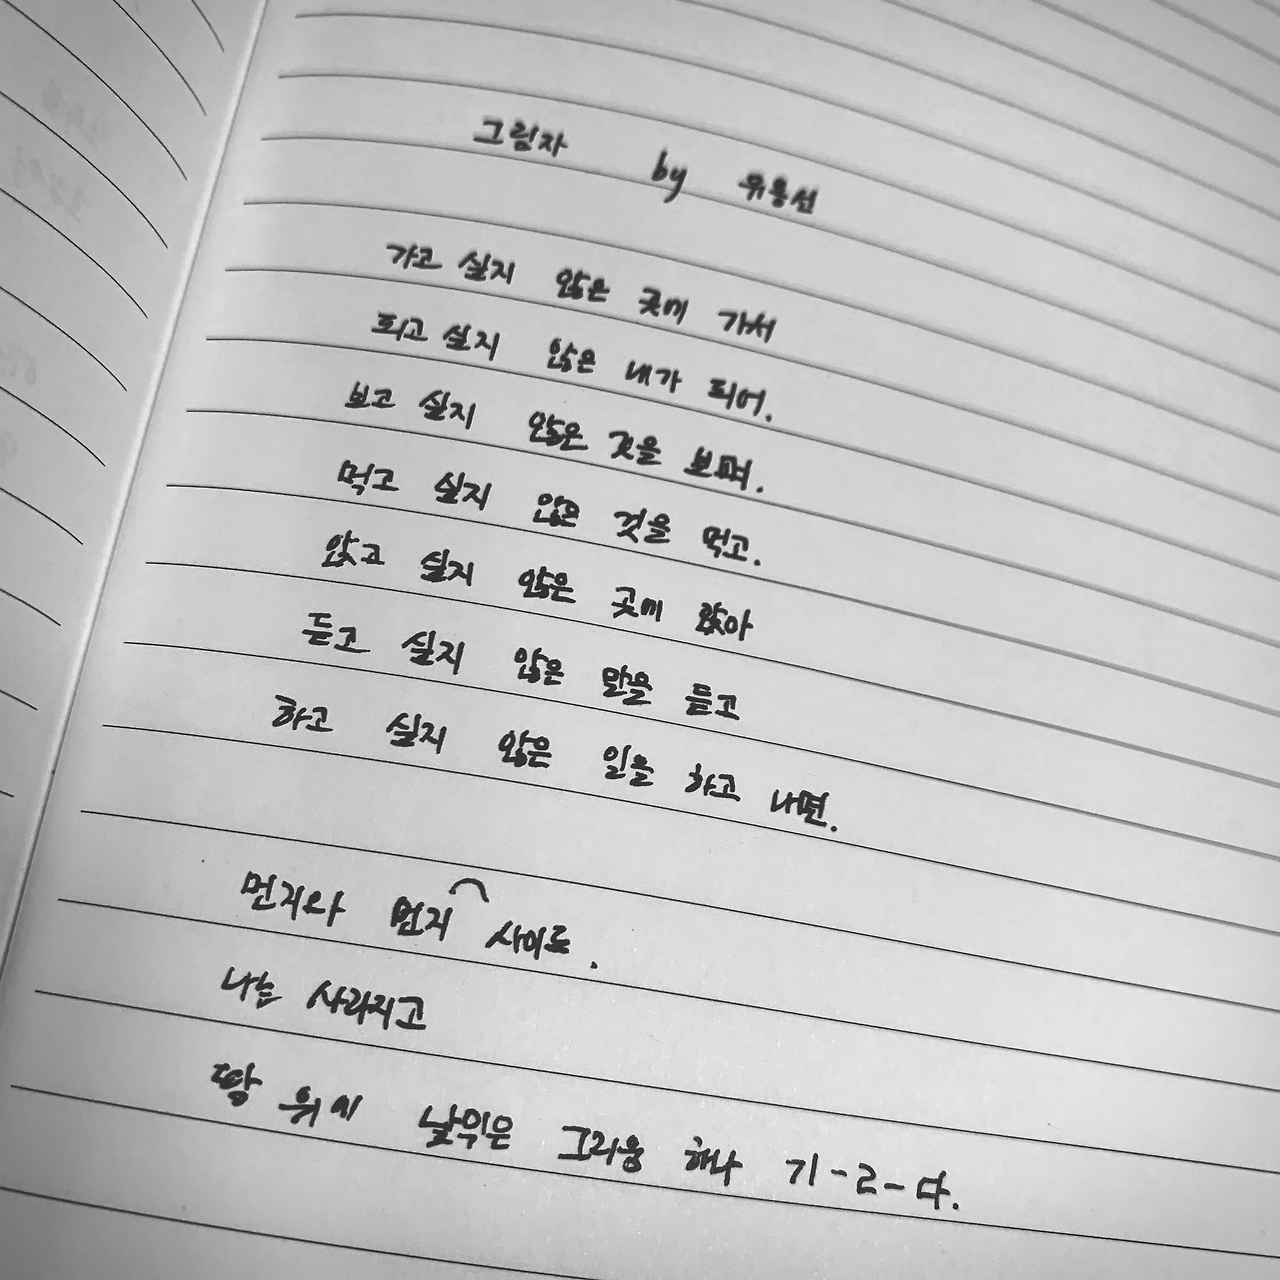 그림자 by 유용선
가고 싶지 않은 곳에 가서
되고 싶지 않은 내가 되어.
보고 싶지 않은 것을 보며.
먹고 싶지 않은 것을 먹고.
앉고 싶지 않은 곳에 앉아
듣고 싶지 않은 말을 듣고
하고 싶지 않은 일을 하고 나면.
먼지와 먼지 사이로.
나는 사라지고
땅 위에 낯익은 그리움 하나 기-르-다.